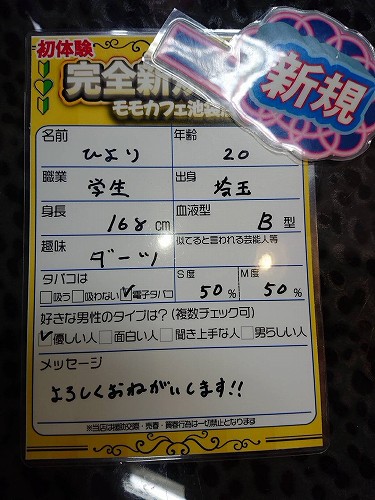 初体験
完全新規
新規
モモカフェ池袋
名前 年齢
ひより 20
職業 出身
学生 埼玉
身長 血液型
168cm B型
趣味 似てると言われる芸能人等
ダーツ
タバコは S度 M度
吸う 吸わない 電子タバコ 50% 50%
好きな男性のタイプは?(複数チェック可)
優しい人 面白い人 聞き上手な人 男らしい人
メッセージ
よろしくおねがいします!!
※当店は援助交際・売春・買春行為は一切禁止となります